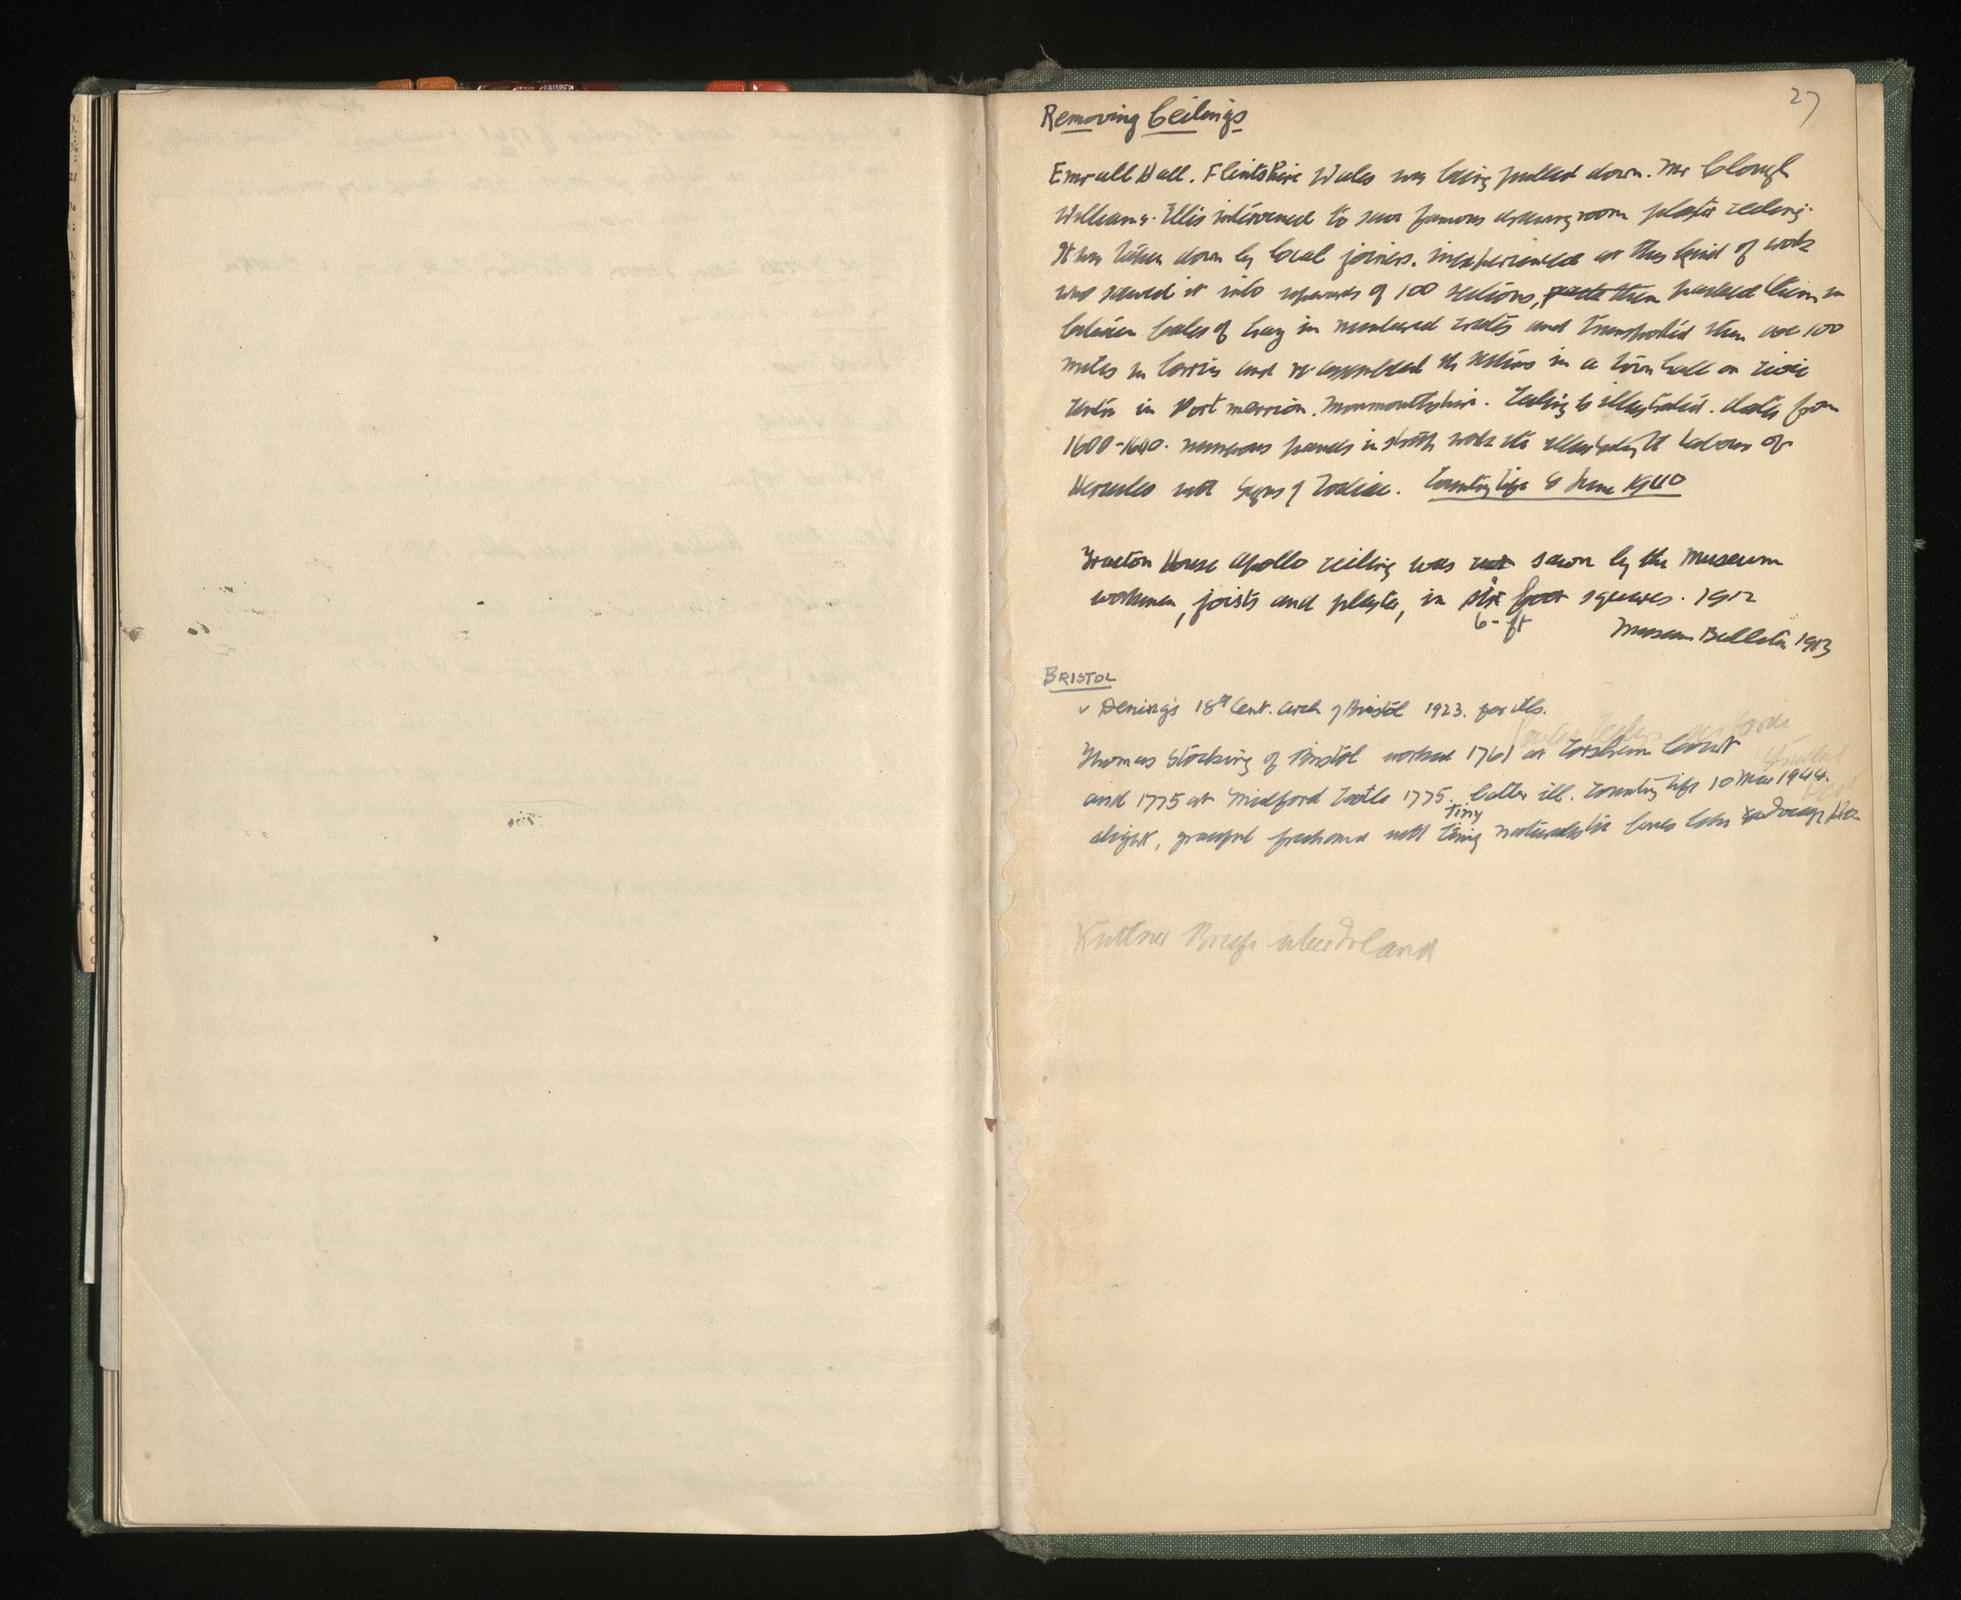 27
Removing Ceilings
Emrall Hall. Flintshire Wales was being pulled down. Mr Clough
Williams-Ellis intervened to save famous drawing room plaster ceiling.
It was taken down by local joiners, inexperienced at this kind of work
who sawed it into upwards of 100 sections, packed them in
between bales of hay in numbered crates and transported them over 100
miles in lorries and re-assembled the sections in a town hall or civic
centre in Portmerrion. Monmouthshire. Ceiling is illustrated. dates from
1600-1640. numerous panels in strap work etc illustrating the labours of
Hercules with signs of Zodiac. Country Life 8 June 1940
Tracton House Apollo ceiling was cut sawn by the Museum
workmen, joists and plaster, in six foot squares. 1912
6-ft
Museum Bulletin 1913
BRISTOL
v Dening's 18th Cent. arch of Bristol 1923. for ills.
Thomas Stocking of Bristol worked 1761 at Corsham Court
and 1775 at Midford Castle 1775. latter ill. Country Life 10 Mar 1944.
tiny
slight, graceful festoons with tiny naturalistic
Kuttner Briefe über Irland